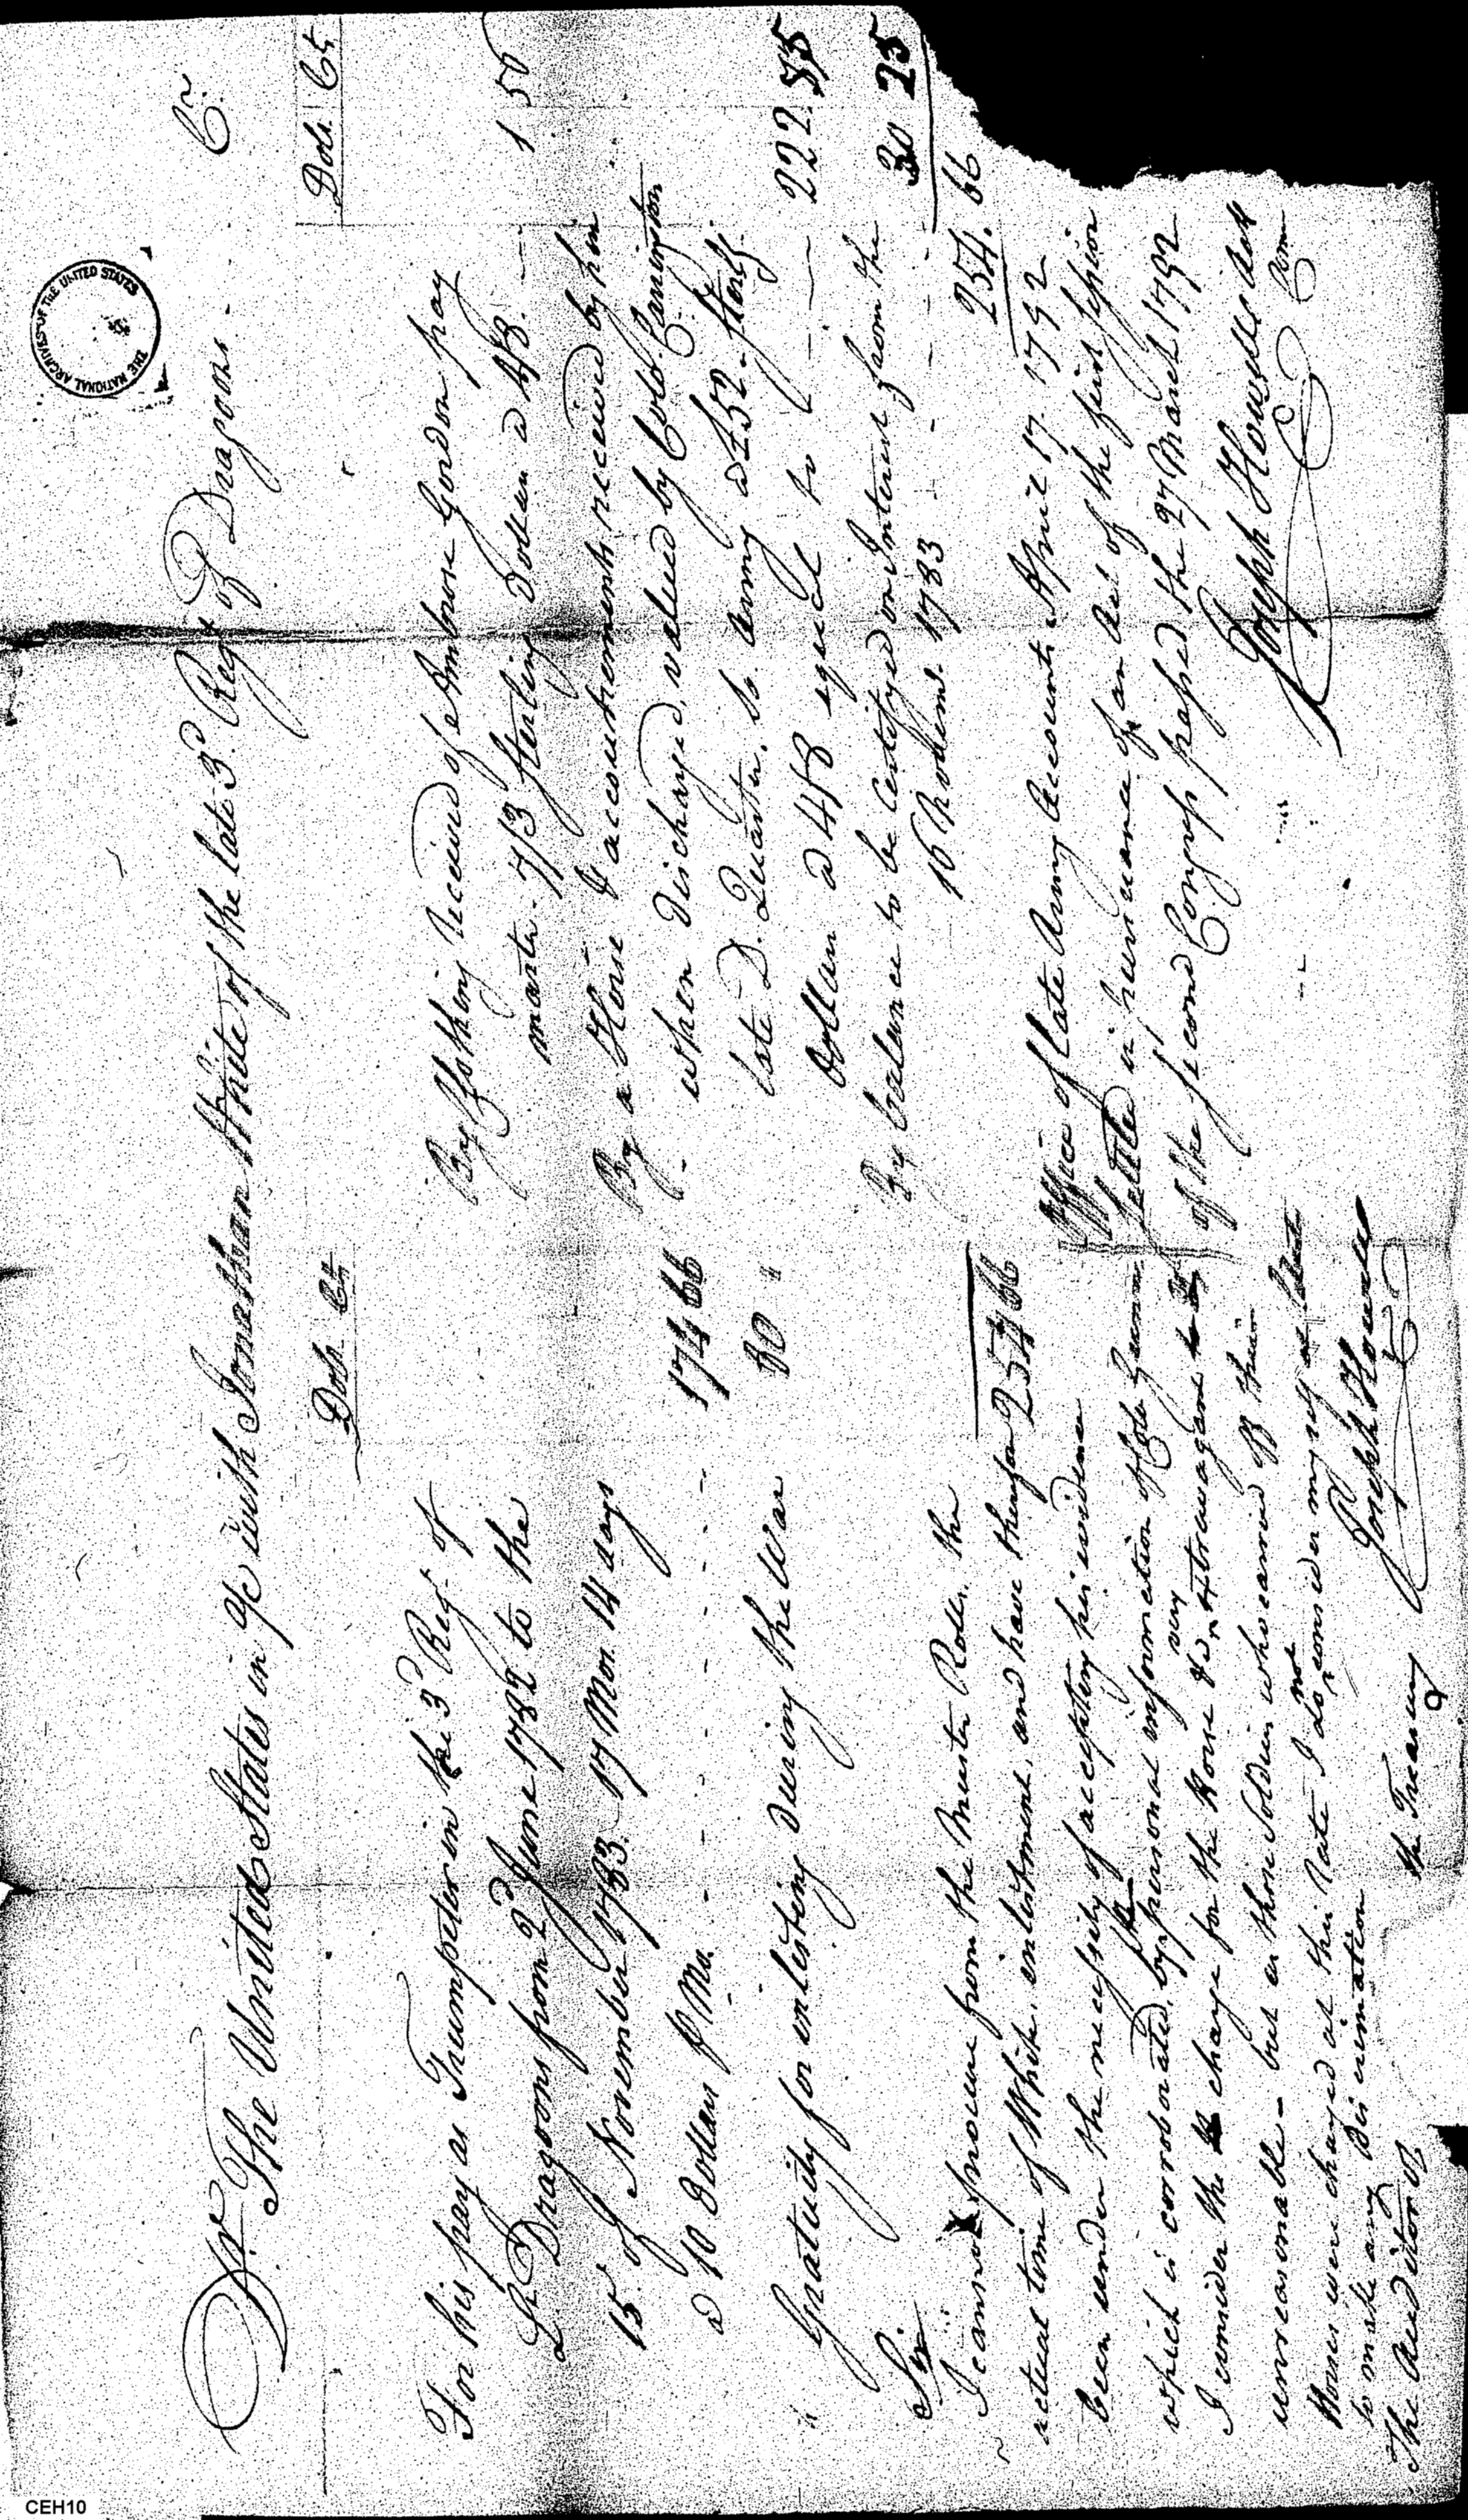 Dr. The United States in a/c with Jonathan White of the late 3d Regt of Dragoons. Cr.
Dols. Cts
For his pay as Trumpeter in the 3d Regt of
Lt Dragoons from 2d June 1782 to the
15 of November 1783. 17 Mos. 14 days
a 10 Dollars P Mo. 174 66
Gratuity for enlisting during the War 80 "
254 66
Dols. Cts
By Clothing received of Ambrose Gordon pay
master 7/3 sterling Dollars a 4/8. 1 56
By a Horse & accoutrements received by him
when discharged, valued by Colo. Carrington
late D. Quarter. So. army a £52 Sterlg.
Dollars a 4/8 equal to 222 85
By balance to be certified on Interest from the 30 25
16 Novem. 1783
254. 66
Office of late Army Accounts April 17. 1792
Settled in pursuance of an Act of the first session
of the second Congress passed the 27 March 1792
Joseph Howell Actt
Comr
Sir
I cannot procure from the Muster Rolls, the
actual time of White, enlistment, and have therefor
been under the necessity of accepting his evidence
which is corroborated by the personal information of Colo Gunn
I consider the charge for the Horse & very extravagant &
unreasonable - but as those Soldiers who earned off their
Horses were charged at this Rate I do not consider myself at
to make any Discrimination
Joseph Howell
The Auditor of the Treasury
THE NATIONAL ARCHIVES OF THE UNITED STATES
CEH10